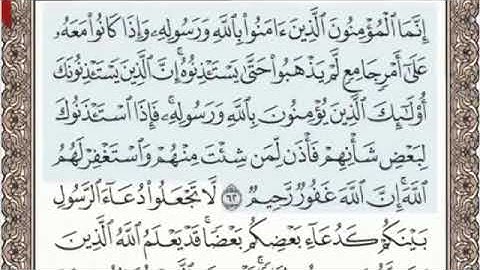 إِنَّمَا ٱلْمُؤْمِنُونَ ٱلَّذِينَ ءَامَنُوا۟ بِٱللَّهِ وَرَسُولِهِۦ وَإِذَا كَانُوا۟ مَعَهُۥ
عَلَىٰٓ أَمْرٍ جَامِعٍ لَّمْ يَذْهَبُوا۟ حَتَّىٰ يَسْتَـْٔذِنُوهُ ۚ إِنَّ ٱلَّذِينَ يَسْتَـْٔذِنُونَكَ
أُو۟لَـٰٓئِكَ ٱلَّذِينَ يُؤْمِنُونَ بِٱللَّهِ وَرَسُولِهِۦ ۚ فَإِذَا ٱسْتَـْٔذَنُوكَ
لِبَعْضِ شَأْنِهِمْ فَأْذَن لِّمَن شِئْتَ مِنْهُمْ وَٱسْتَغْفِرْ لَهُمُ
ٱللَّهَ ۚ إِنَّ ٱللَّهَ غَفُورٌ رَّحِيمٌ ٦٢ لَّا تَجْعَلُوا۟ دُعَآءَ ٱلرَّسُولِ
بَيْنَكُمْ كَدُعَآءِ بَعْضِكُم بَعْضًا ۚ قَدْ يَعْلَمُ ٱللَّهُ ٱلَّذِينَ